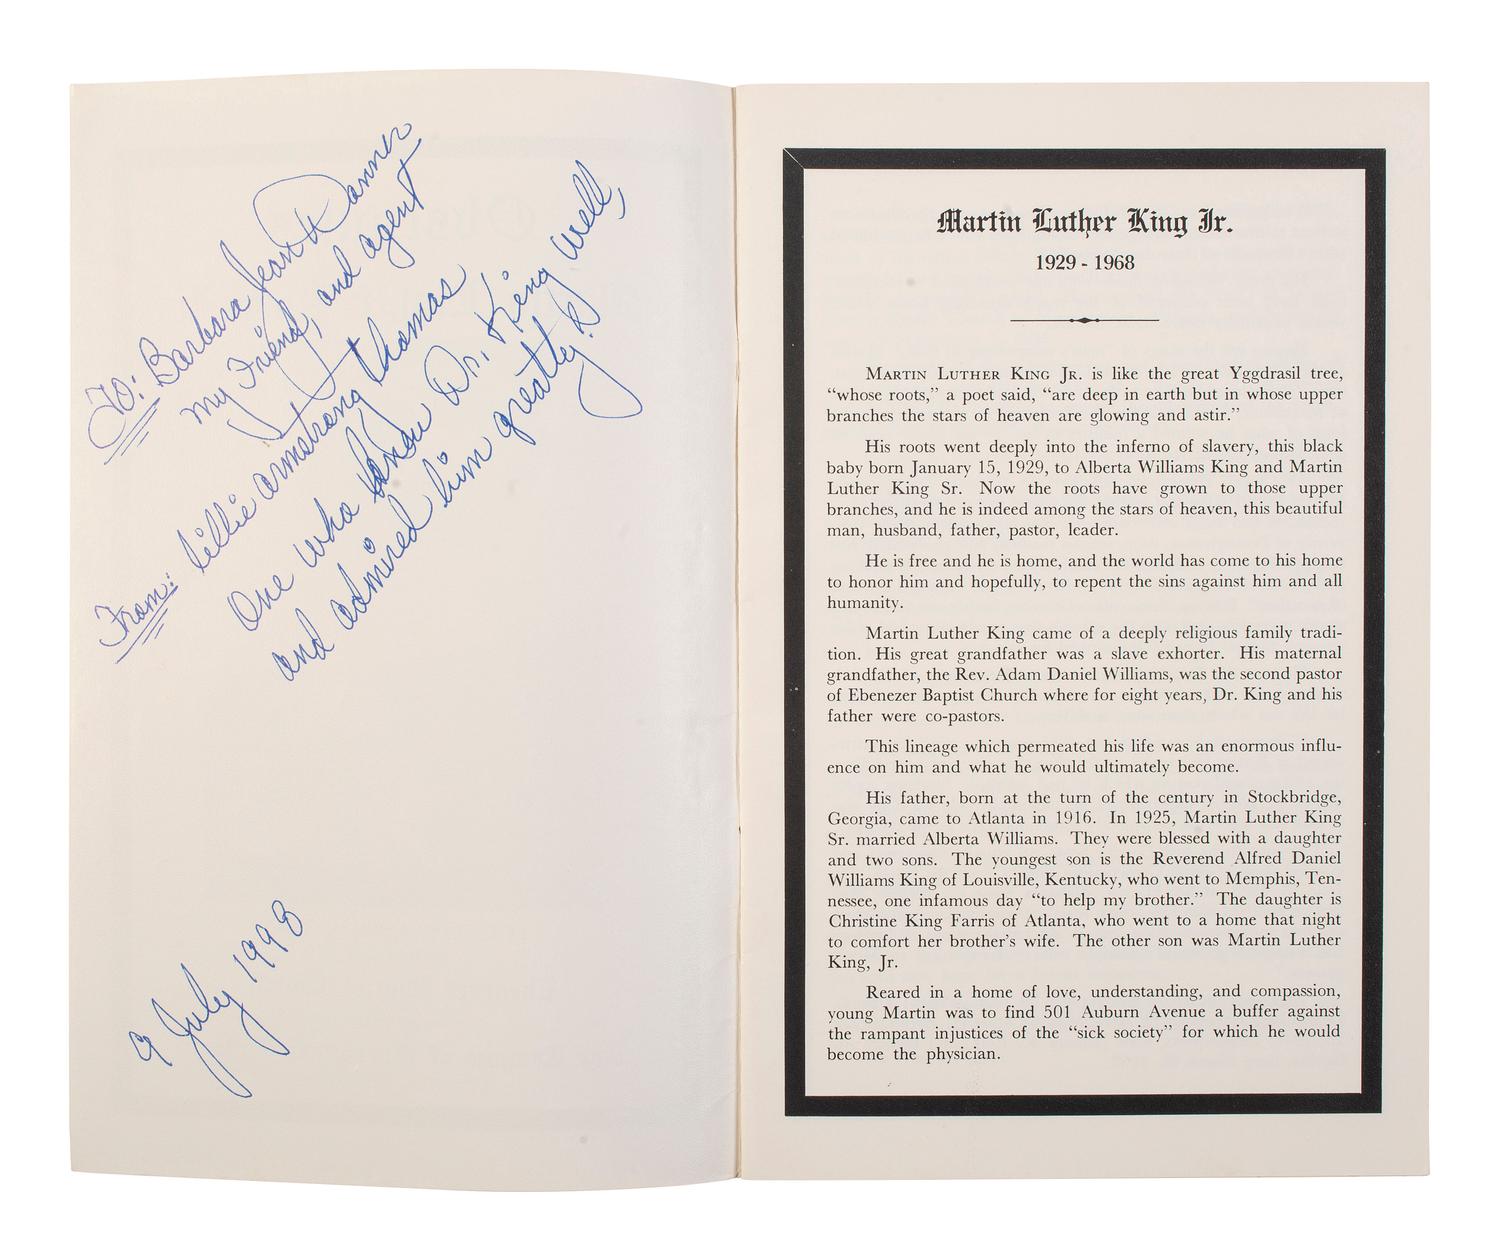 To: Barbara Jean Danner
my Friend, and agent
From: Lillie Armstrong Thomas
One who knew Dr. King well,
and admired him greatly.
9 July 1998
Martin Luther King Jr.
1929 - 1968
MARTIN LUTHER KING JR. is like the great Yggdrasil tree,
“whose roots,” a poet said, “are deep in earth but in whose upper
branches the stars of heaven are glowing and astir.”
His roots went deeply into the inferno of slavery, this black
baby born January 15, 1929, to Alberta Williams King and Martin
Luther King Sr. Now the roots have grown to those upper
branches, and he is indeed among the stars of heaven, this beautiful
man, husband, father, pastor, leader.
He is free and he is home, and the world has come to his home
to honor him and hopefully, to repent the sins against him and all
humanity.
Martin Luther King came of a deeply religious family tradi-
tion. His great grandfather was a slave exhorter. His maternal
grandfather, the Rev. Adam Daniel Williams, was the second pastor
of Ebenezer Baptist Church where for eight years, Dr. King and his
father were co-pastors.
This lineage which permeated his life was an enormous influ-
ence on him and what he would ultimately become.
His father, born at the turn of the century in Stockbridge,
Georgia, came to Atlanta in 1916. In 1925, Martin Luther King
Sr. married Alberta Williams. They were blessed with a daughter
and two sons. The youngest son is the Reverend Alfred Daniel
Williams King of Louisville, Kentucky, who went to Memphis, Ten-
nessee, one infamous day “to help my brother.” The daughter is
Christine King Farris of Atlanta, who went to a home that night
to comfort her brother’s wife. The other son was Martin Luther
King, Jr.
Reared in a home of love, understanding, and compassion,
young Martin was to find 501 Auburn Avenue a buffer against
the rampant injustices of the “sick society” for which he would
become the physician.